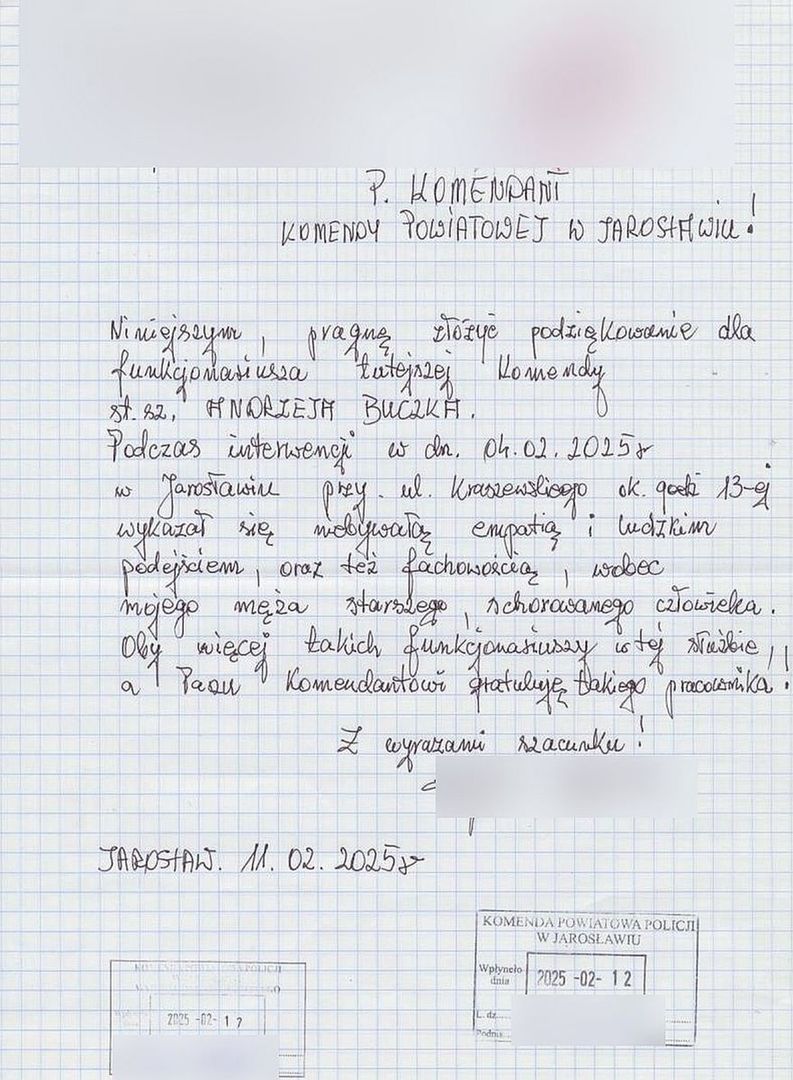 P. KOMENDANT
KOMENDY POWIATOWEJ W JAROSŁAWIU!
Niniejszym, pragnę złożyć podziękowanie dla
funkcjonariusza tutejszej Komendy
st. sz. ANDRZEJA BUCZKA.
Podczas interwencji w dn. 04.02.2025r
w Jarosławiu przy. ul. Kraszewskiego ok. godz 13-ej
wykazał się niebywałą empatią i ludzkim
podejściem, oraz też fachowością, wobec
mojego męża starszego, schorowanego człowieka.
Oby więcej takich funkcjonariuszy w tej służbie,
a Panu Komendantowi gratuluję takiego pracownika!
Z wyrazami szacunku!
JAROSŁAW. 11.02.2025r
KOMENDA POWIATOWA POLICJI
W JAROSŁAWIU
Wpłynęło
dnia
2025 -02- 12
L. dz.
Podpis
POLICJI
2025 -02- 17